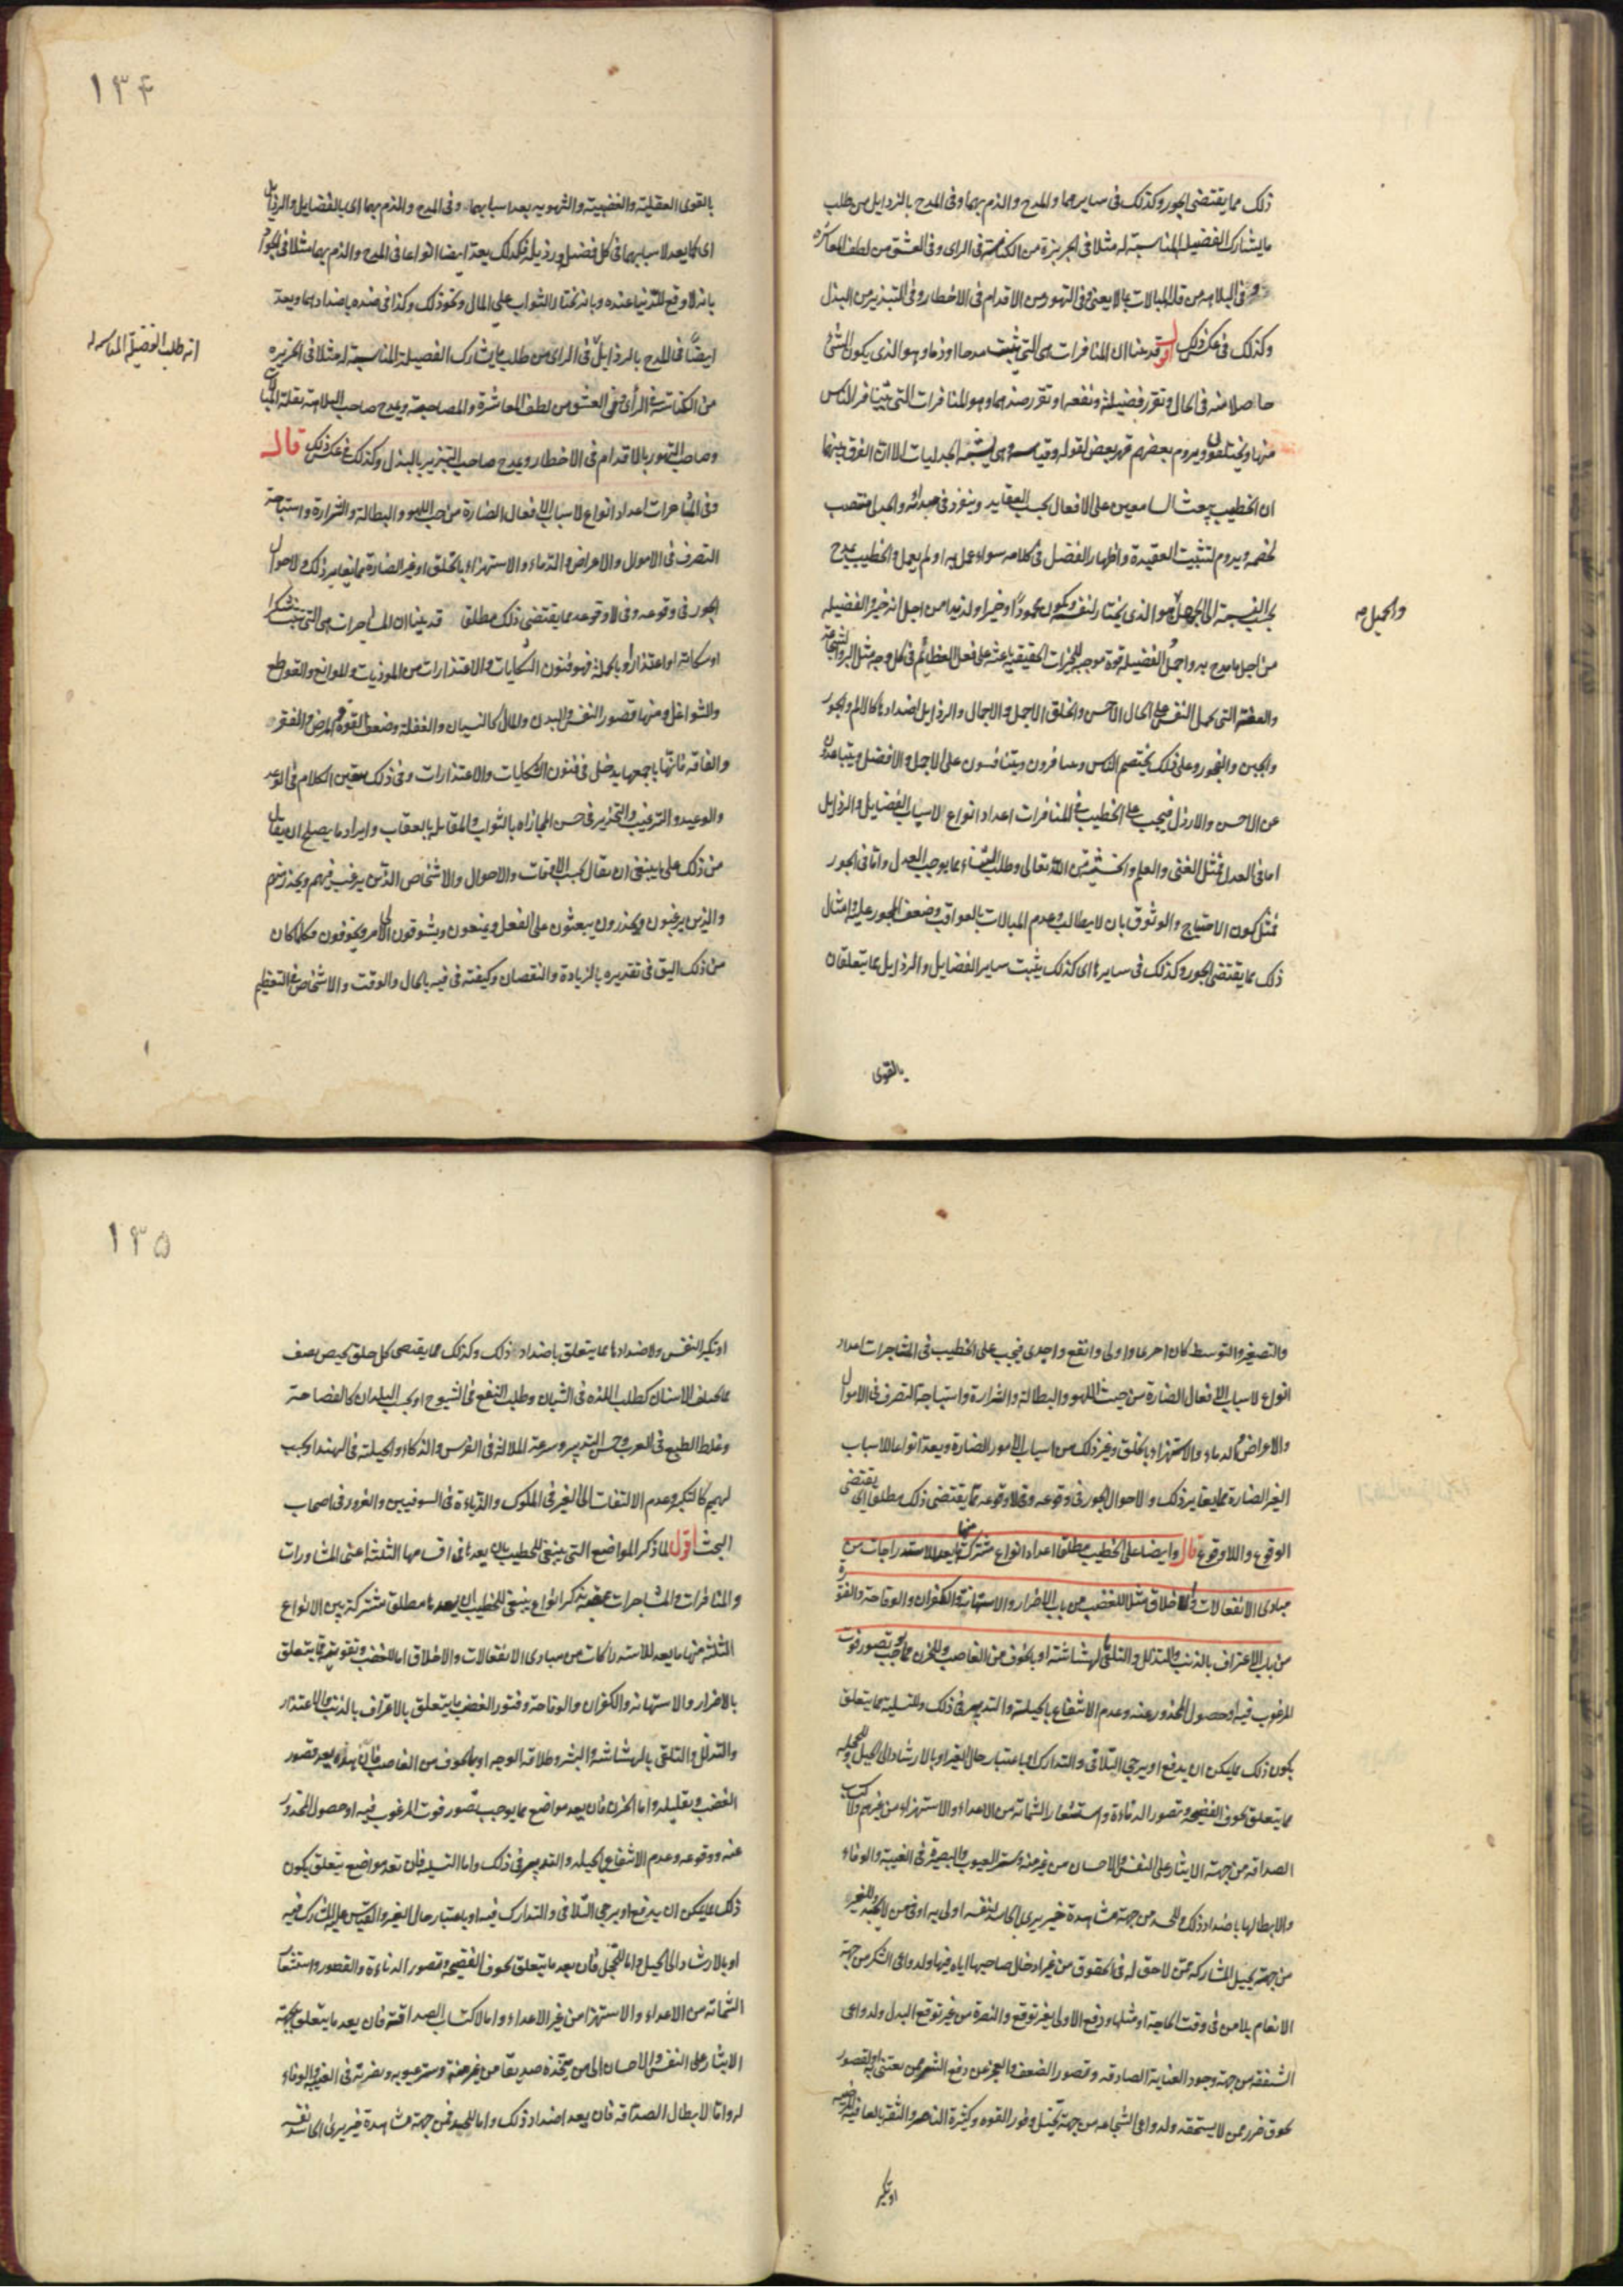 ذلك مما يقتضى الجور وكذلك فى سايرهما والمدح والذم بهما وفى المدح بالرذايل من طلب
ما يشارك الفضيلة المناسبة له مثلا فى الجربزة من الكناسة فى الراى وفى العشق من لطف المعاشره
وفى البلاهة من قلة المبالات بما لا يعنى وفى التهور من الاقدام فى الاخطار وفى التبذير من البذل
وكذلك فى عكس ذلك اقول قد عنا ان المنافرات هى التى يثبت مدحا او ذما وهو الذى يكون الشئ
حاصلا منه فى الحال وتقرر فضيلة ونفعه او تقرر ضدهما وهو المنافرات التى يتنافر الناس
منها ويختلفون ويروم بعضهم قهر بعض لقوله وقياسه وهى يشبه الجدليات الا ان الفرق بينهما
ان الخطيب يبعث السامعين على الافعال بحسب العقايد وينفرد فى مبدائه والجدل منتصب
لخصمه ويروم لتثبيت العقيدة واظهار الفضل فى كلامه سواء عمل به او لم يعمل والخطيب يمدح
بحسب النسبة الى الجميل هو الذى يختار لنفسه ويكون محمودا او خيرا ولذيذا من اجل انه خير والفضيله
والجميل صه
من اجل ما مدح به واجمل الفضيله قوة موجبه للخيرات الحقيقية باعثة على فعل العظائم فى كل وجه مثل البر والشجاعة
والعفة التى تحمل النفس على الحال الاحسن والخلق الاجمل والاجمال والرذايل اضدادها كالالم والجور
والجبن والفجور وعلى ذلك يختصم الناس ويسافرون ويتنافسون على الاجمل والافضل ويتباعدون
عن الاحسن والارذل فيجب على الخطيب فى المنافرات اعداد انواع لاسباب الفضايل والرذايل
اما فى العدل فمثل الغنى والعلم والخشية من الله تعالى وطلب الثناء مما يوجب العدل واما فى الجور
فمثل كون الاحتياج والوثوق بان لا يطالب وعدم المبالات بالعواقب وضعف المجور عليه وامثال
ذلك مما يقتضى الجور وكذلك فى سايرها اى كذلك يثبت ساير الفضايل والرذايل مما يتعلقان
بالقوى
١٣٤
بالقوى العقلية والغضبية والشهويه بعد اسبابهما وفى المدح والذم بهما اى بالفضايل والرذايل
اى كما يعد لاسبابهما فى كل فضيله ورذيله فكذلك يعد ايضا انواعا فى المدح والذم بهما مثلا فى الجواد
بانه لا وقع للدنيا عنده وبانه يختار الثواب على المال ونحو ذلك وكذا فى ضده باضدادهما ويعد
ايضا فى المدح بالرذايل فى الراى من طلب ما يشارك الفضيلة المناسبة له مثلا فى الجربزه
انه طلب الفضيلة المناسبه له
من الكناسة فى الرأى وفى العشق من لطف المعاشرة والمصاحبة ويمدح صاحب البلاهة بقلة المبالاة
وصاحب التهور بالاقدام فى الاخطار ويمدح صاحب التبذير بالبذل وكذلك فى عكس ذلك قال
وفى المشاجرات اعداد انواع لاسباب الافعال الضارة من حب اللهو والبطالة والشرارة واستباحة
التصرف فى الاموال والاعراض والدماء والاستهزاء بالخلق او غير الضارة مما يغاير ذلك ولاحوال
الجور فى وقوعه وفى لا وقوعه مما يقتضى ذلك مطلقا قد بينا ان المشاجرات هى التى تثبت شكرا
او شكاية او اعتذارا وبالجملة فهو فنون الشكايات والاعتذارات من الموذيات والموانع والقواطع
والشواغل ومنها قصور النفس والبدن والمال كالنسيان والغفلة وضعف القوة والمرض والفقر
والفاقه فانها باجمعها يدخل فى فنون الشكايات والاعتذارات وفى ذلك يتعين الكلام فى الوعد
والوعيد والترغيب والتحذير فى حسن المجازاه بالثواب والمقابله بالعقاب وايراد ما يصلح ان يقال
من ذلك على ما ينبغى ان يقال بحسب الاوقات والاحوال والاشخاص الذين يرغب فيهم ويحذر منهم
والذين يرغبون ويحذرون يبعثون على الفعل ويمنعون ويشوقون الى الامر ويخوفون فكلما كان
من ذلك اليق فى تقديره بالزيادة والنقصان وكيفته فى فيه بالحال والوقت والاشخاص فى التعظيم
والتصغير والتوسط كان احرى واولى وانفع واجدى فيجب على الخطيب فى المشاجرات اعداد
انواع لاسباب الافعال الضارة من حيث اللهو والبطالة والشرارة واستباحة التصرف فى الاموال
والاعراض والدماء والاستهزاء بالخلق وغير ذلك من اسباب الامور الضارة ويعد انواعا للاسباب
الغير الضارة مما يغاير ذلك والاحوال الجور فى وقوعه وفى لا وقوعه مما يقتضى ذلك مطلقا اى يقتضى
الوقوع واللاوقوع قال وايضا على الخطيب مطلقا اعداد انواع مشتركة منها يعد للاستدراجات من
مبادى الانفعالات والاخلاق مثلا للغضب من باب الاضرار والاستهانة والكفران والوقاحة والفتور
من باب الاعتراف بالذنب والتذلل والتلقى بالهشاشة او بالخوف من الغاصب وللحزن مما يوجب تصور فوت
المرغوب فيه او حصول المحذور عنه وعدم الانتفاع بالحيلة والتدبير فى ذلك وللتسلية مما يتعلق
بكون ذلك مما يمكن ان يدفع او يرجى التلافى والتدارك او باعتبار حال الغير او بالارشاد الى الحيل وللخجله
مما يتعلق بخوف الفضيحة وتصور الدناءة واستشعار الشماتة من الاعداء والاستهزاء من غيرهم ولاكتساب
الصداقة من جهة الايثار على النفس والاحسان من غير منة وستر العيوب والبصيرة فى الغيبة والوفاء
والابطالها باضداد ذلك وللحسد من جهة مشاهدة خير يرى الحاسد نفسه اولى به او فى من لا يحبه وللغيرة
من جهة تخيل المشاركة ممن لا حق له فى الحقوق من غير ادخال صاحبها اياه فيها ولدواعى الشكر من جهة
الانعام بلا من فى وقت الحاجة او مثلها ودفع الاولى بغير توقع والنصرة من غير توقع البدل ولدواعى
الشفقة من جهة وجود العناية الصادقه وتصور الضعف والعجز عن دفع الشر ممن يعتنى به او لقصور
لحوق ضرر ممن لا يستحقه ولدواعى الشجاعه من جهة تخيل وفور القوه وكثرة الناصر والثقة بالعافيه
او تكبر
١٣٥
او تكبر النفس ولاضدادها مما يتعلق باضداد ذلك وكذلك مما يقتضى كل خلق يخص بصنف
مما بحسب الاسنان كطلب اللذه فى الشبان وطلب النفع فى الشيوخ او بحسب البلدان كالفصاحة
وغلظ الطبع فى العرب وحسن التدبير وسرعة الملالة فى الفرس والذكاء والحيلة فى الهند او بحسب
لهم كالتكبر وعدم الالتفات الى الغير فى الملوك والدناءة فى السوقيين والغرور فى اصحاب
البخت اقول لما ذكر المواضع التى ينبغى للخطيب ان يعدها فى اقسامها الثلثة اعنى المشاورات
والمنافرات والمشاجرات عقبه بذكر انواع ينبغى للخطيب ان يعدها مطلقا مشتركة بين الانواع
الثلثه منها ما يعد للاستدراكات من مبادى الانفعالات والاخلاق اما للغضب وتقويته فما يتعلق
بالاضرار والاستهانة والكفران والوقاحة وفتور الغضب ما يتعلق بالاعتراف بالذنب والاعتذار
والتذلل والتلقى بالهشاشة والبشر وطلاقة الوجه او بالخوف من الغاصب فان بهذه يعد قصور
الغضب وبقليله واما الحزن فان يعد مواضع مما يوجب تصور فوت المرغوب فيه او حصول المحذور
عنه ووقوعه وعدم الانتفاع بالحيله والتدبير فى ذلك واما التسليه فان تعد مواضع يتعلق بكون
ذلك مما يمكن ان يدفع او يرجى التلافى والتدارك فيه او باعتبار حال الغير والقياس على المشارك فيه
او بالارشاد الى الحيل واما للخجل فان يعد ما يتعلق بخوف الفضيحة وتصور الدناءة والقصور واستشعار
الشماتة من الاعداء والاستهزا من غير الاعداء واما لاكتساب الصداقة فان يعد ما يتعلق بجهة
الايثار على النفس والاحسان الى من يتخذه صديقا من غير منة وستر عيوبه ونصرته فى الغيبة والوفاء
له واما لابطال الصداقة فان يعد اضداد ذلك واما للحسد فمن جهة مشاهدة خير يرى الحاسد نفسه